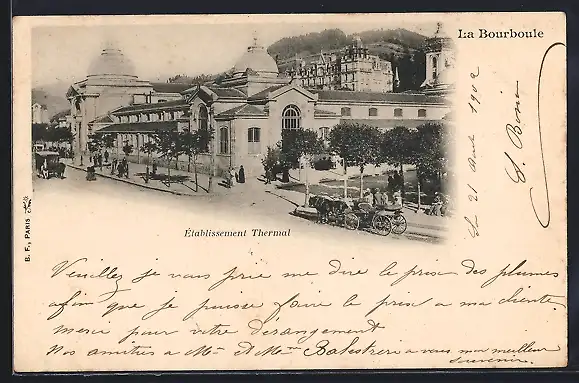 La Bourboule
Le 21 Aout 1902
Établissement Thermal
B. F., PARIS
Veuillez je vous prie me dire le prix des plumes
afin que je puisse faire le prix a ma cliente.
merci pour vôtre Derangement
Nos amitiés a Mr et Mme Balestreri a vous mon meilleur
souvenir.